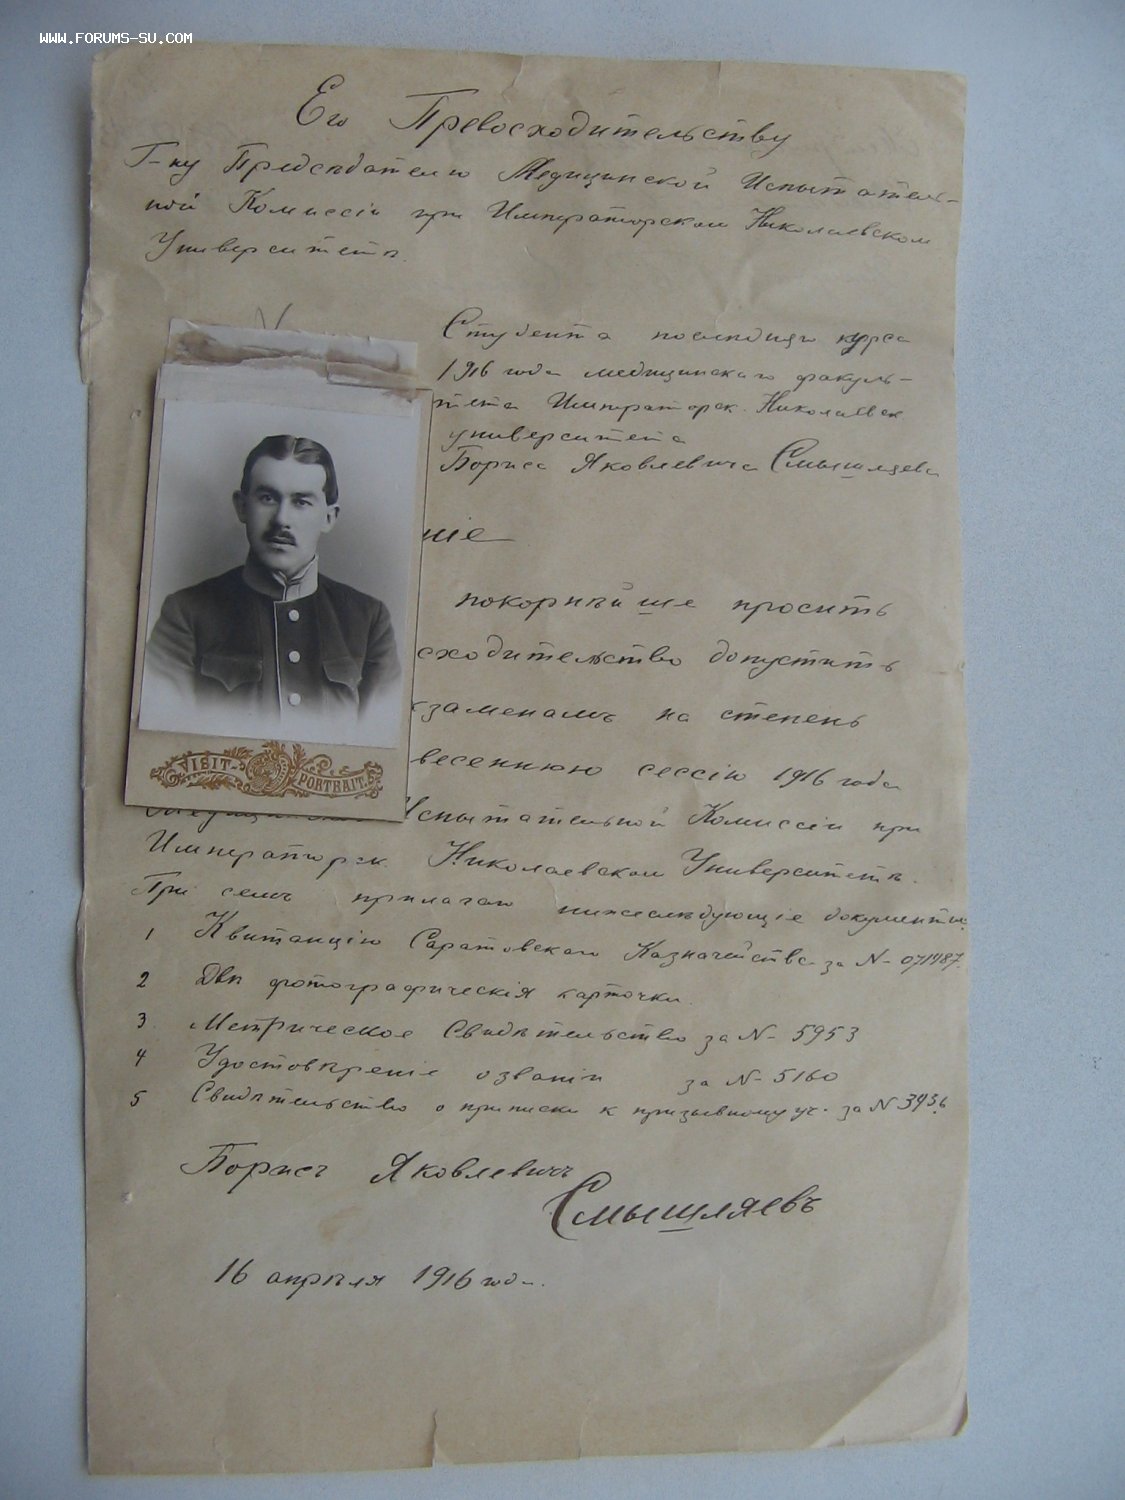 WWW.FORUMS-SU.COM
Его Превосходительству
Г-ну Предсѣдателю Медицинской Испытатель-
ной Комиссіи при Императорском Николаевском
Университетѣ.
Студента последняго курса
1916 года медицинскаго факуль-
тета Императорск. Николаевск
университета
Бориса Яковлевича Смышляева
ніе
покорнѣйше просить
сходительство допустить
кзаменамъ на степень
весеннюю сессію 1916 года
Испытательной Комиссіи при
Императорск. Николаевском Университетѣ.
При семъ прилагаю нижеслѣдующіе документы:
1 Квитанцію Саратовскаго Казначейства за N- 071987.
2 Двѣ фотографическія карточки.
3. Метрическое Свидѣтельство за N- 5953
4 Удостовѣреніе о званіи за N- 5160
5 Свидѣтельство о приписки к призывному уч. за N 3936.
Борисъ Яковлевичъ
Смышляевъ
16 апрѣля 1916 года.
VISIT-PORTRAIT.